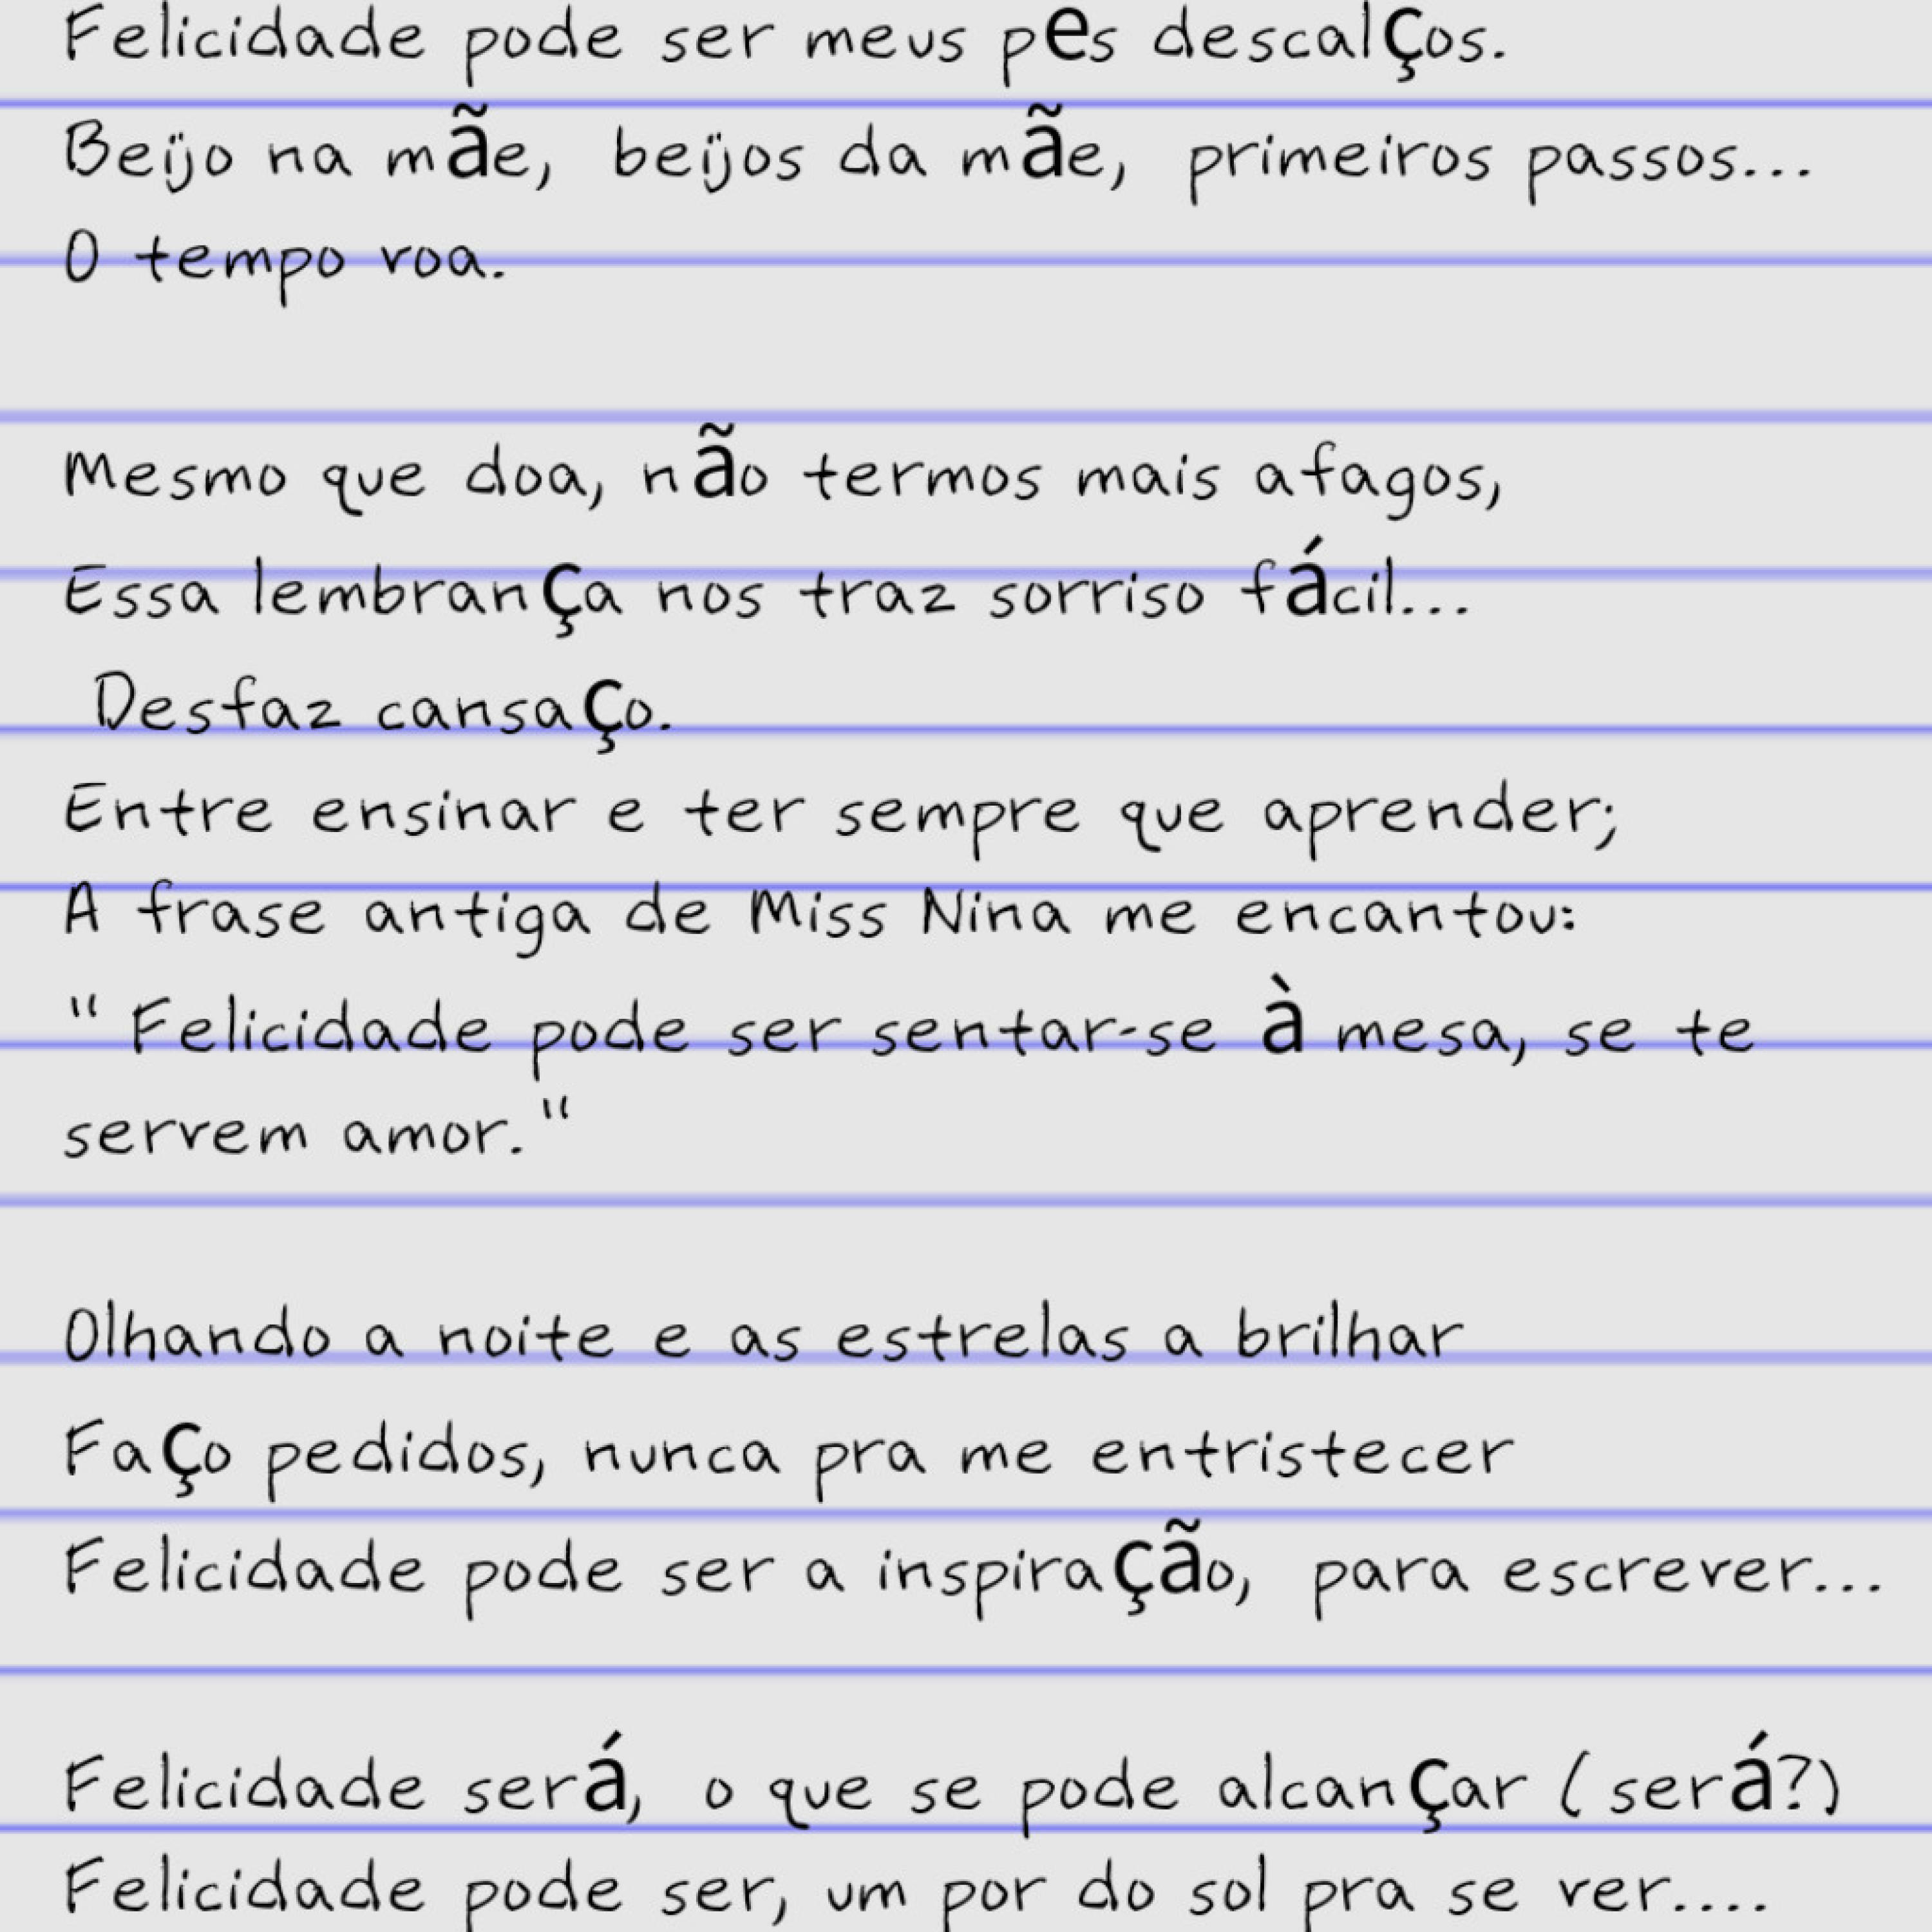 Felicidade pode ser meus pes descalços.
Beijo na mãe, beijos da mãe, primeiros passos...
O tempo voa.
Mesmo que doa, não termos mais afagos,
Essa lembrança nos traz sorriso fácil...
Desfaz cansaço.
Entre ensinar e ter sempre que aprender;
A frase antiga de Miss Nina me encantou:
" Felicidade pode ser sentar-se à mesa, se te
servem amor."
Olhando a noite e as estrelas a brilhar
Faço pedidos, nunca pra me entristecer
Felicidade pode ser a inspiração, para escrever...
Felicidade será, o que se pode alcançar ( será?)
Felicidade pode ser, um por do sol pra se ver....